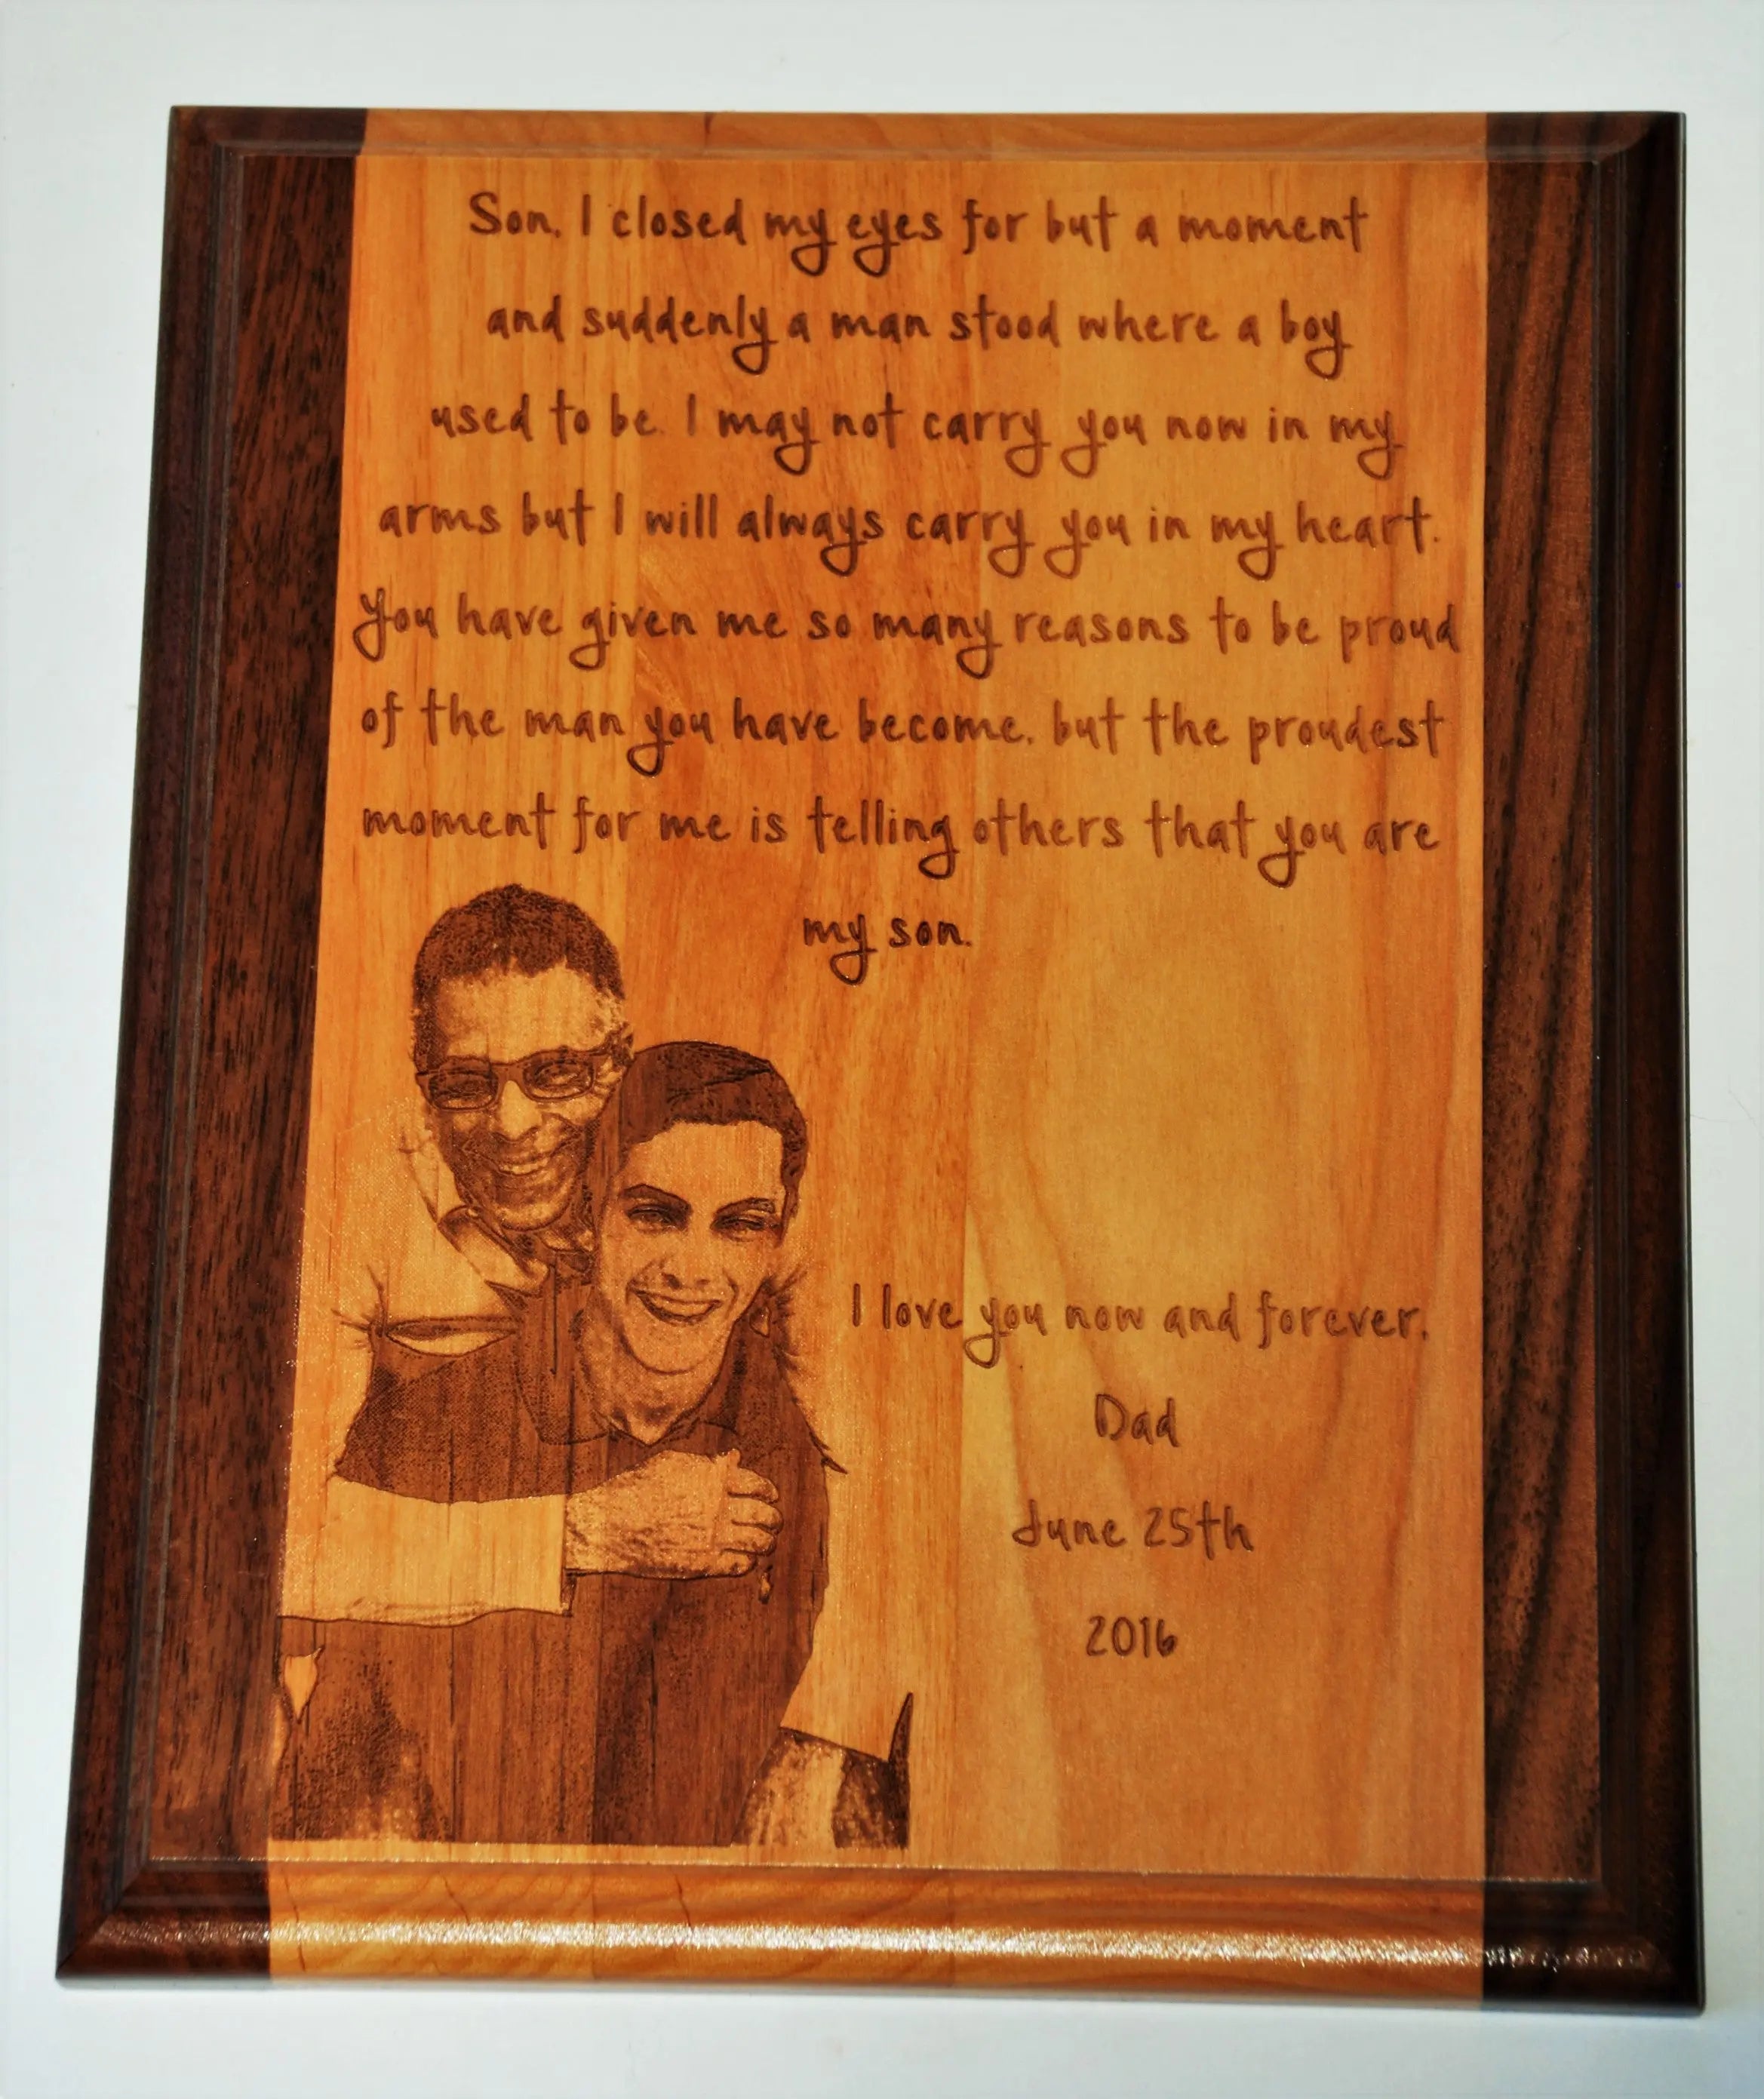 Son, I closed my eyes for but a moment
and suddenly a man stood where a boy
used to be. I may not carry you now in my
arms but I will always carry you in my heart.
You have given me so many reasons to be proud
of the man you have become, but the proudest
moment for me is telling others that you are
my son.
I love you now and forever,
Dad
June 25th
2016